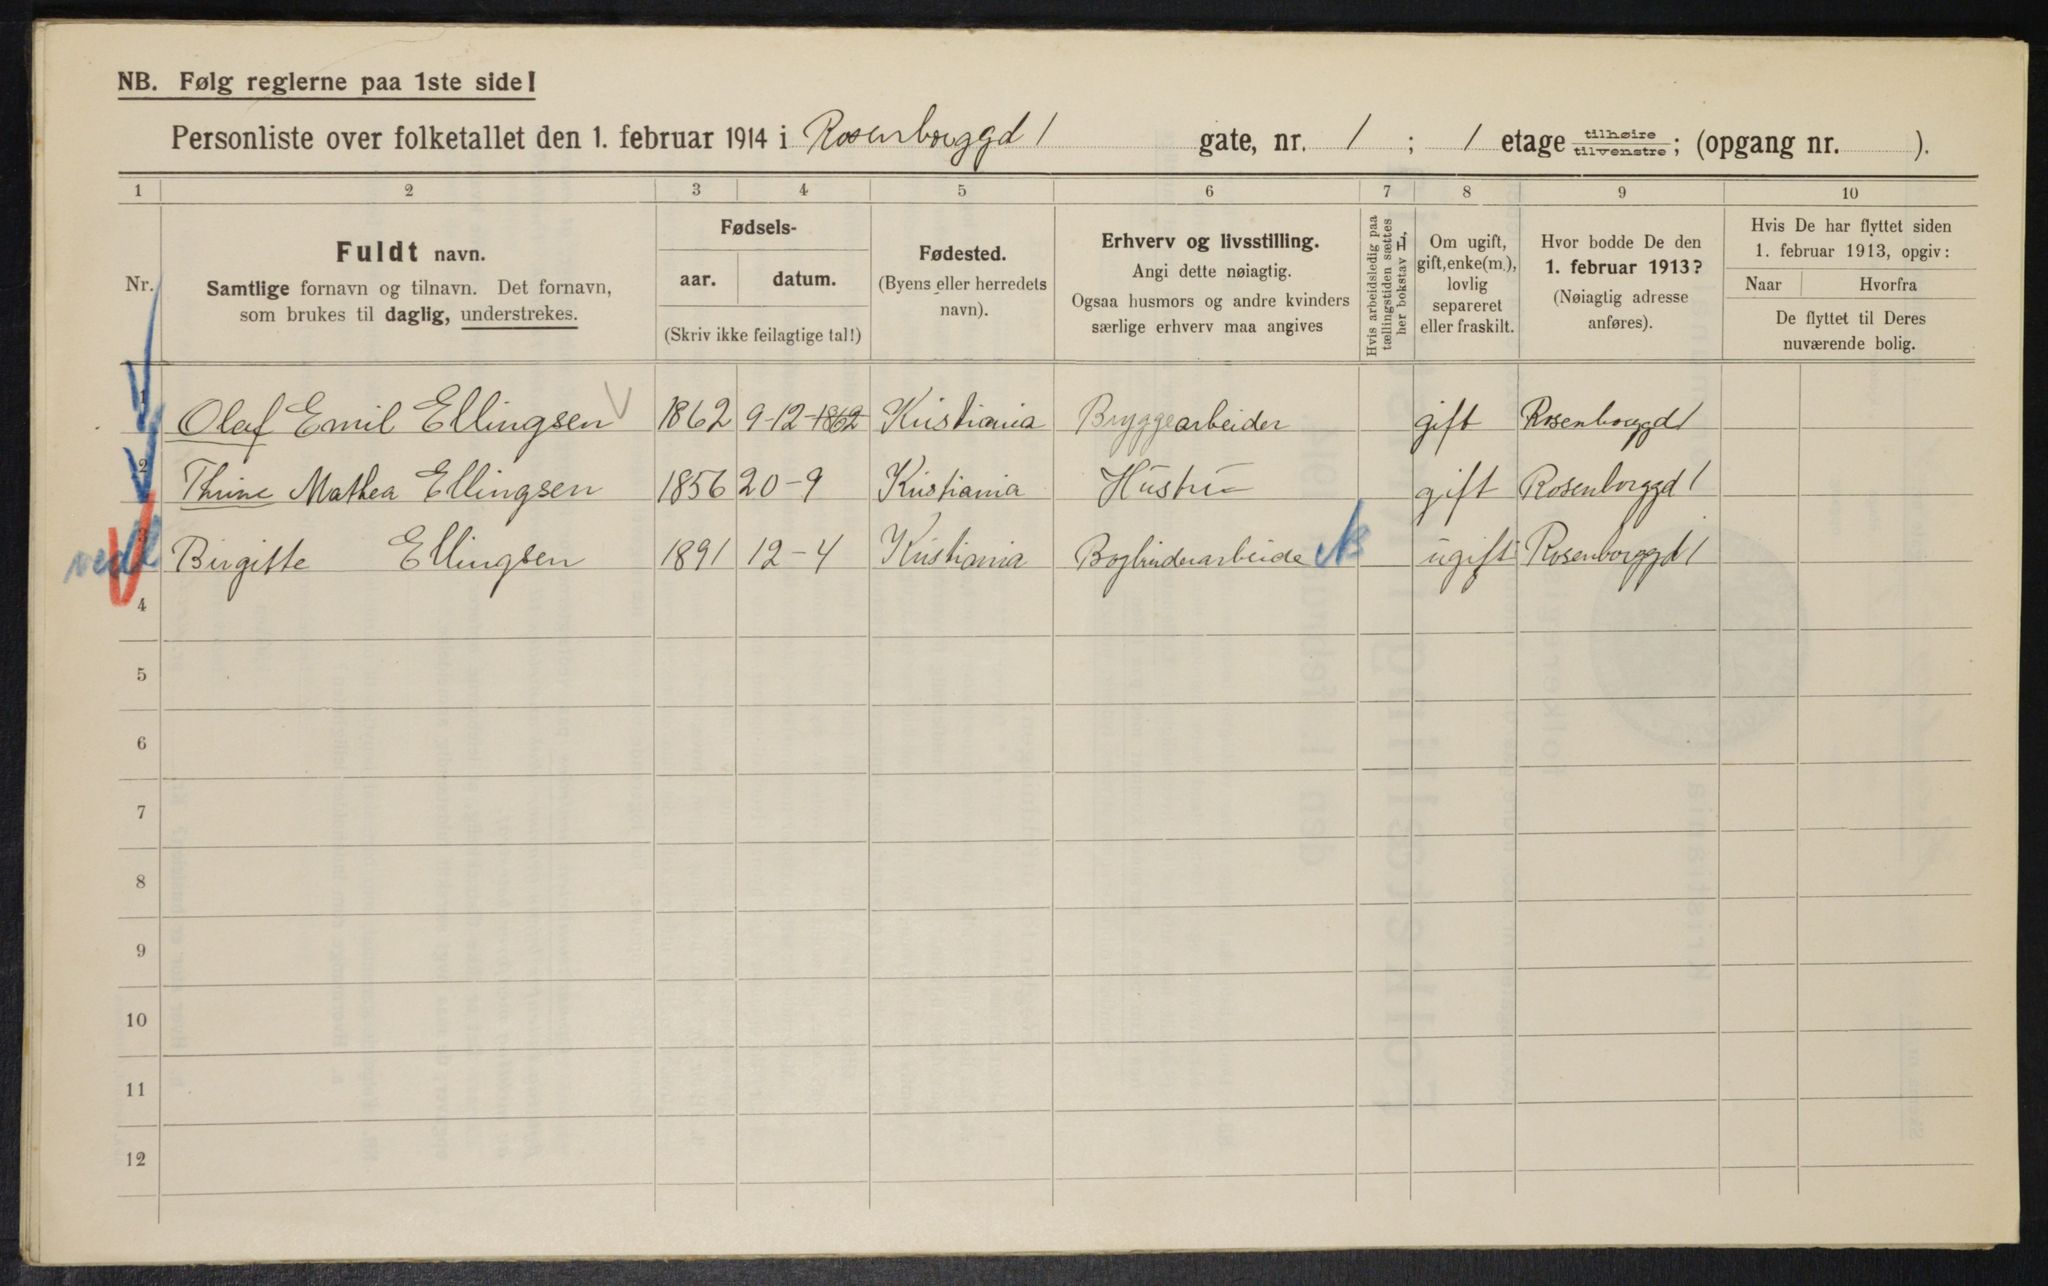 NB. Følg reglerne paa 1ste side!
Personliste over folketallet den 1. februar 1914 i Rosenborggd 1 gate, nr. 1 ; 1 etage tilhøire tilvenstre; (opgang nr. ).
1 2 3 4 5 6 7 8 9 10
Nr.
Fuldt navn.
Samtlige fornavn og tilnavn. Det fornavn,
som brukes til daglig, understrekes.
Fødsels-
aar. datum.
(Skriv ikke feilagtige tal!)
Fødested.
(Byens eller herredets
navn).
Erhverv og livsstilling.
Angi dette nøiagtig.
Ogsaa husmors og andre kvinders
særlige erhverv maa angives
Hvis arbeidsledig paa
tællingstiden sættes
her bokstav L.
Om ugift,
gift, enke(m.),
lovlig
separeret
eller fraskilt.
Hvor bodde De den
1. februar 1913?
(Nøiagtig adresse
anføres).
Hvis De har flyttet siden
1. februar 1913, opgiv:
Naar Hvorfra
De flyttet til Deres
nuværende bolig.
1 Olaf Emil Ellingsen 1862 9-12-1862 Kristiania Bryggearbeider gift Rosenborggd 1
2 Thrine Mathea Ellingsen 1856 20-9 Kristiania Hustru gift Rosenborggd 1
3 Birgitte Ellingsen 1891 12-4 Kristiania Bogbinderarbeide ugift Rosenborggd 1
4
5
6
7
8
9
10
11
12